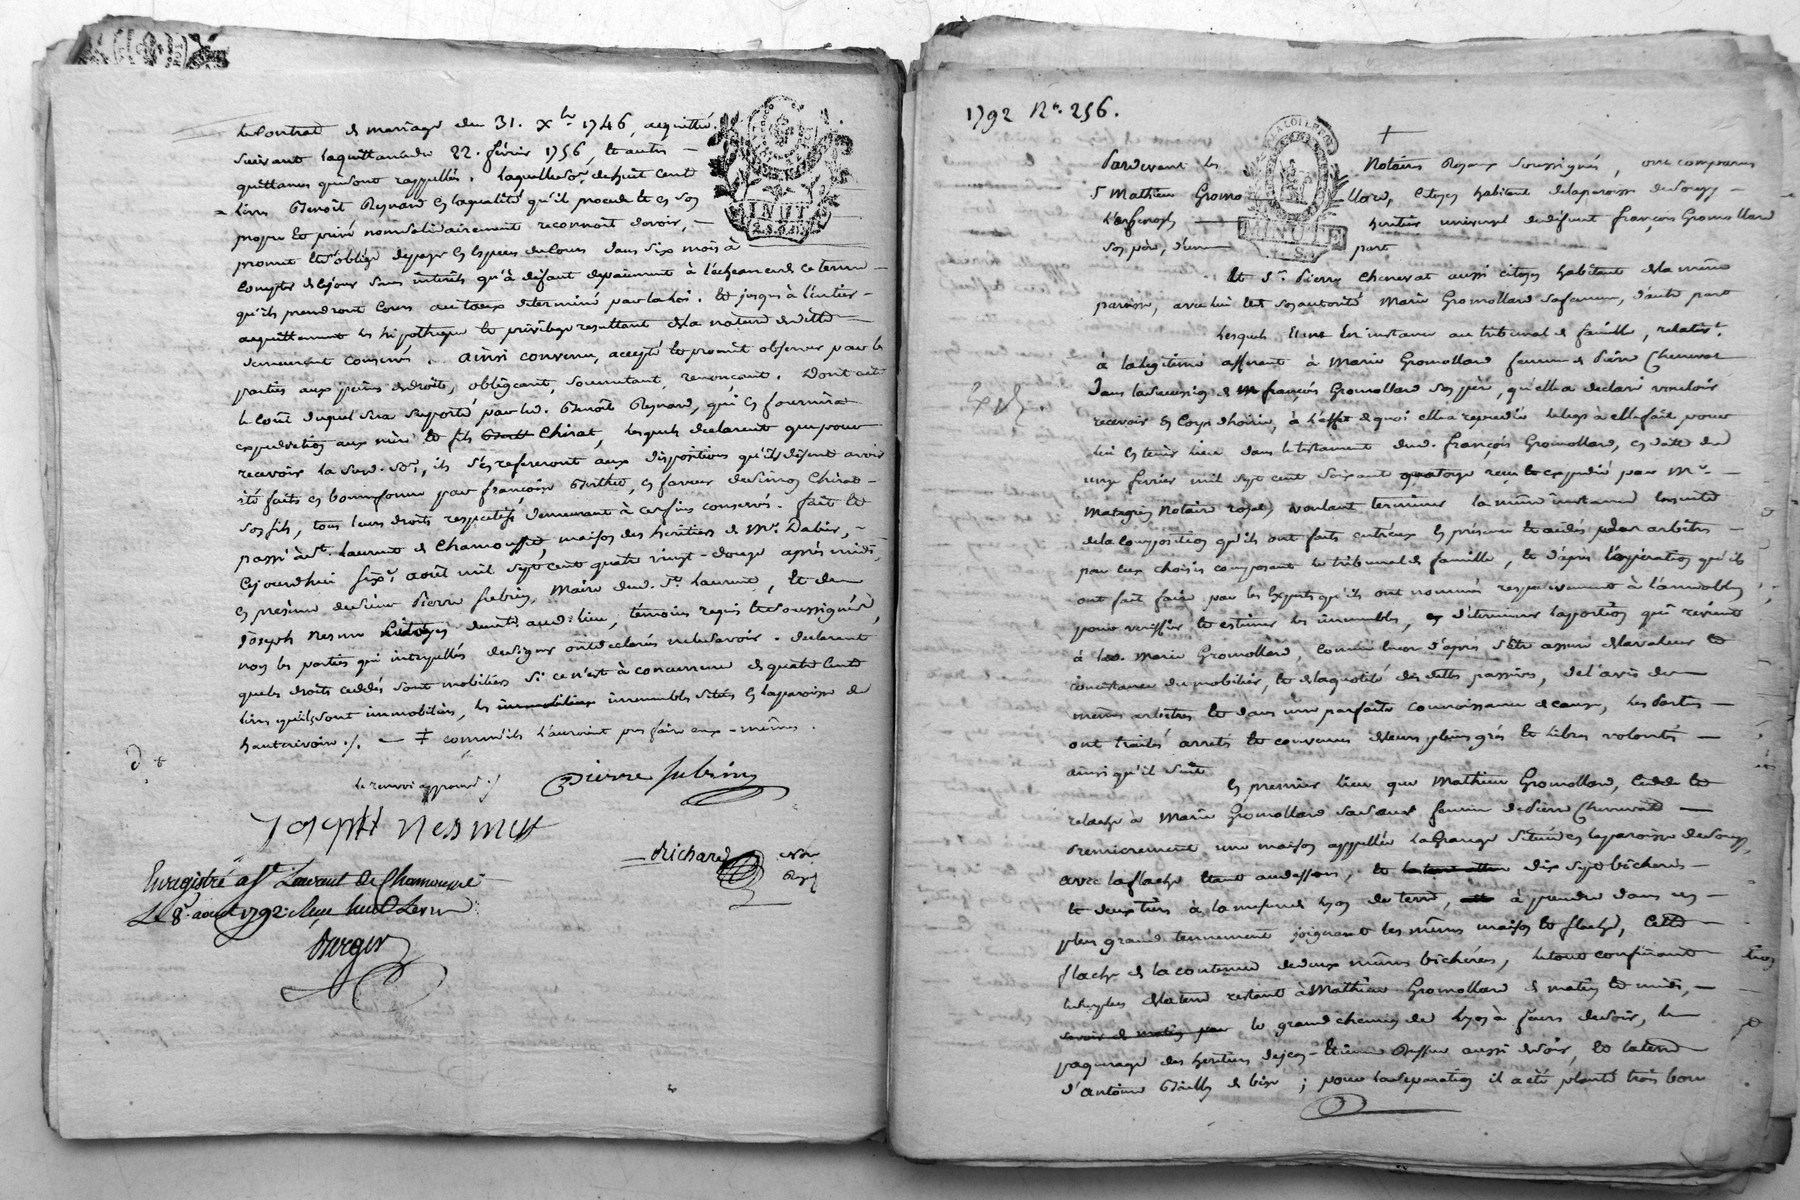 le Contrat de mariage du 31. Xbre 1746, acquitté
suivant la quittance du 22. février 1756, et autres
quittances qui sont rappellés. laquelle somme de huit cent
livres Benoît Reynard en la qualité qu'il procede et en son
propre et privé nom solidairement reconnoit devoir,
promet et s'oblige de payer en Especes de Cours dans six mois à
compter de ce jour sans intérêts qu'à défaut de payement à l'écheance de ce terme
qu'ils prendront Cours au taux déterminé par la loi. Et jusques à l'entier
acquittement les hipothèque et privilege resultant de la nature de dette
demeurent conservés. ainsi convenu, accepté et promit observer par les
parties aux peines de droits, obligeant, soumettant, renonçant. Dont acte
le coût duquel sera supporté par led. Benoît Reynard, qui en fournira
expedition aux mère et fils Chirat, lesquels declarent que pour
recevoir la susd. Some, ils s'en refereront aux dispositions qu'ils disent avoir
été faits en bonne forme par françoise Berthet, en faveur de Simon Chirat
son fils, tous leurs droits respectifs demeurant à ces fins conservés. fait et
passé à St. Laurent de Chamousset, maison des héritiers de Mr. Dabier,
Cejourdhui sixe. août mil sept cent quatre vingt-douze après midi,
en présence de Sieur Pierre Subrin, Maire dud. St. Laurent, Et de
Joseph Nesme demt. aud. lieu, témoins requis et Soussignés,
non les parties qui interpellés de signer ont declarés ne le savoir. declarent
que les droits cédés sont mobiliers si ce n'est à concurrence de quatre Cent
livres qu'ils sont immobiliers, les immobiliers immeubles situés en la paroisse de
hauterivoire ./. ‡ comme ils l'auroient pu faire eux-mêmes.
le renvoi approuvé ./.
Pierre Subrin
Joseph Nesme
Richard
Not.
Royal
Enregistré a St. Laurent De Chamousset
Le 8. aout 1792.
Burger
1792 No. 256.
Pardevant les Notaires Royaux Soussignés, ont comparus
S Mathieu Gromollard, Citoyen habitant de la paroisse de Souzy
L'argentière héritier universel de défunt françois Gromollard
Son père, d'une part
Et Sr. Pierre Chenevat aussi citoyen habitant de la même
paroisse, avec lui et de son autorité Marie Gromollard sa femme, d'autre part
Lesquels Etant En instance au tribunal de famille, relativt.
à la légitime afférant à Marie Gromollard femme de Pierre Chenevat
Dans la Succession de françois Gromollard son père, qu'elle a declaré vouloir
recevoir en Corps d'hoirie, à l'effet de quoi elle a repudié le legs à elle fait pour
lui en tenir lieu dans le testament dud. françois Gromollard, en datte du
onze février mil sept cent soixante quatorze reçu et expédié par Me.
Notaire royal, voulant terminer la même instance ensuite
de la composition qu'ils ont faits entr'eux en présence et aidés par arbitres
par eux choisis composant le tribunal de famille, Et d'après l'opération qu'ils
ont fait faire par les Experts qu'ils ont nommés respectivement à l'amiable
pour verifier et estimer les immeubles, et déterminer la portion qui revient
à lad. Marie Gromollard, Comme encor d'après s'être assuré de la valeur et
consistance du mobilier, et de la quotité des dettes passives, de l'avis des
mêmes arbitres et dans une parfaite connoissance de cause, les Parties
ont traités arretés et convenus de leurs pleins grés et libres volontés
ainsi qu'il suit
En premier lieu que Mathieu Gromollard, Cedde et
relache à Marie Gromollard sa soeur femme de Pierre Chenevat
Premierement une maison appellée La Grange située en la paroisse de Souzy,
avec la flache au dessous, et dix sept bicherées
et deux tiers à la mesure de Lyon de terre, à prendre dans un
plus grand tennement joignant les mêmes maison et flache, Cette
flache de la contenue de deux mêmes bicherées, le tout confinant
le surplus de la terre restant à Mathieu Gromollard de matin et midi,
le grand chemin de Lyon à feurs de soir, le
paquerage des heritiers de Jean-Etienne aussi de soir, et la terre
d'antoine de bise; pour la separation il a été planté trois bornes